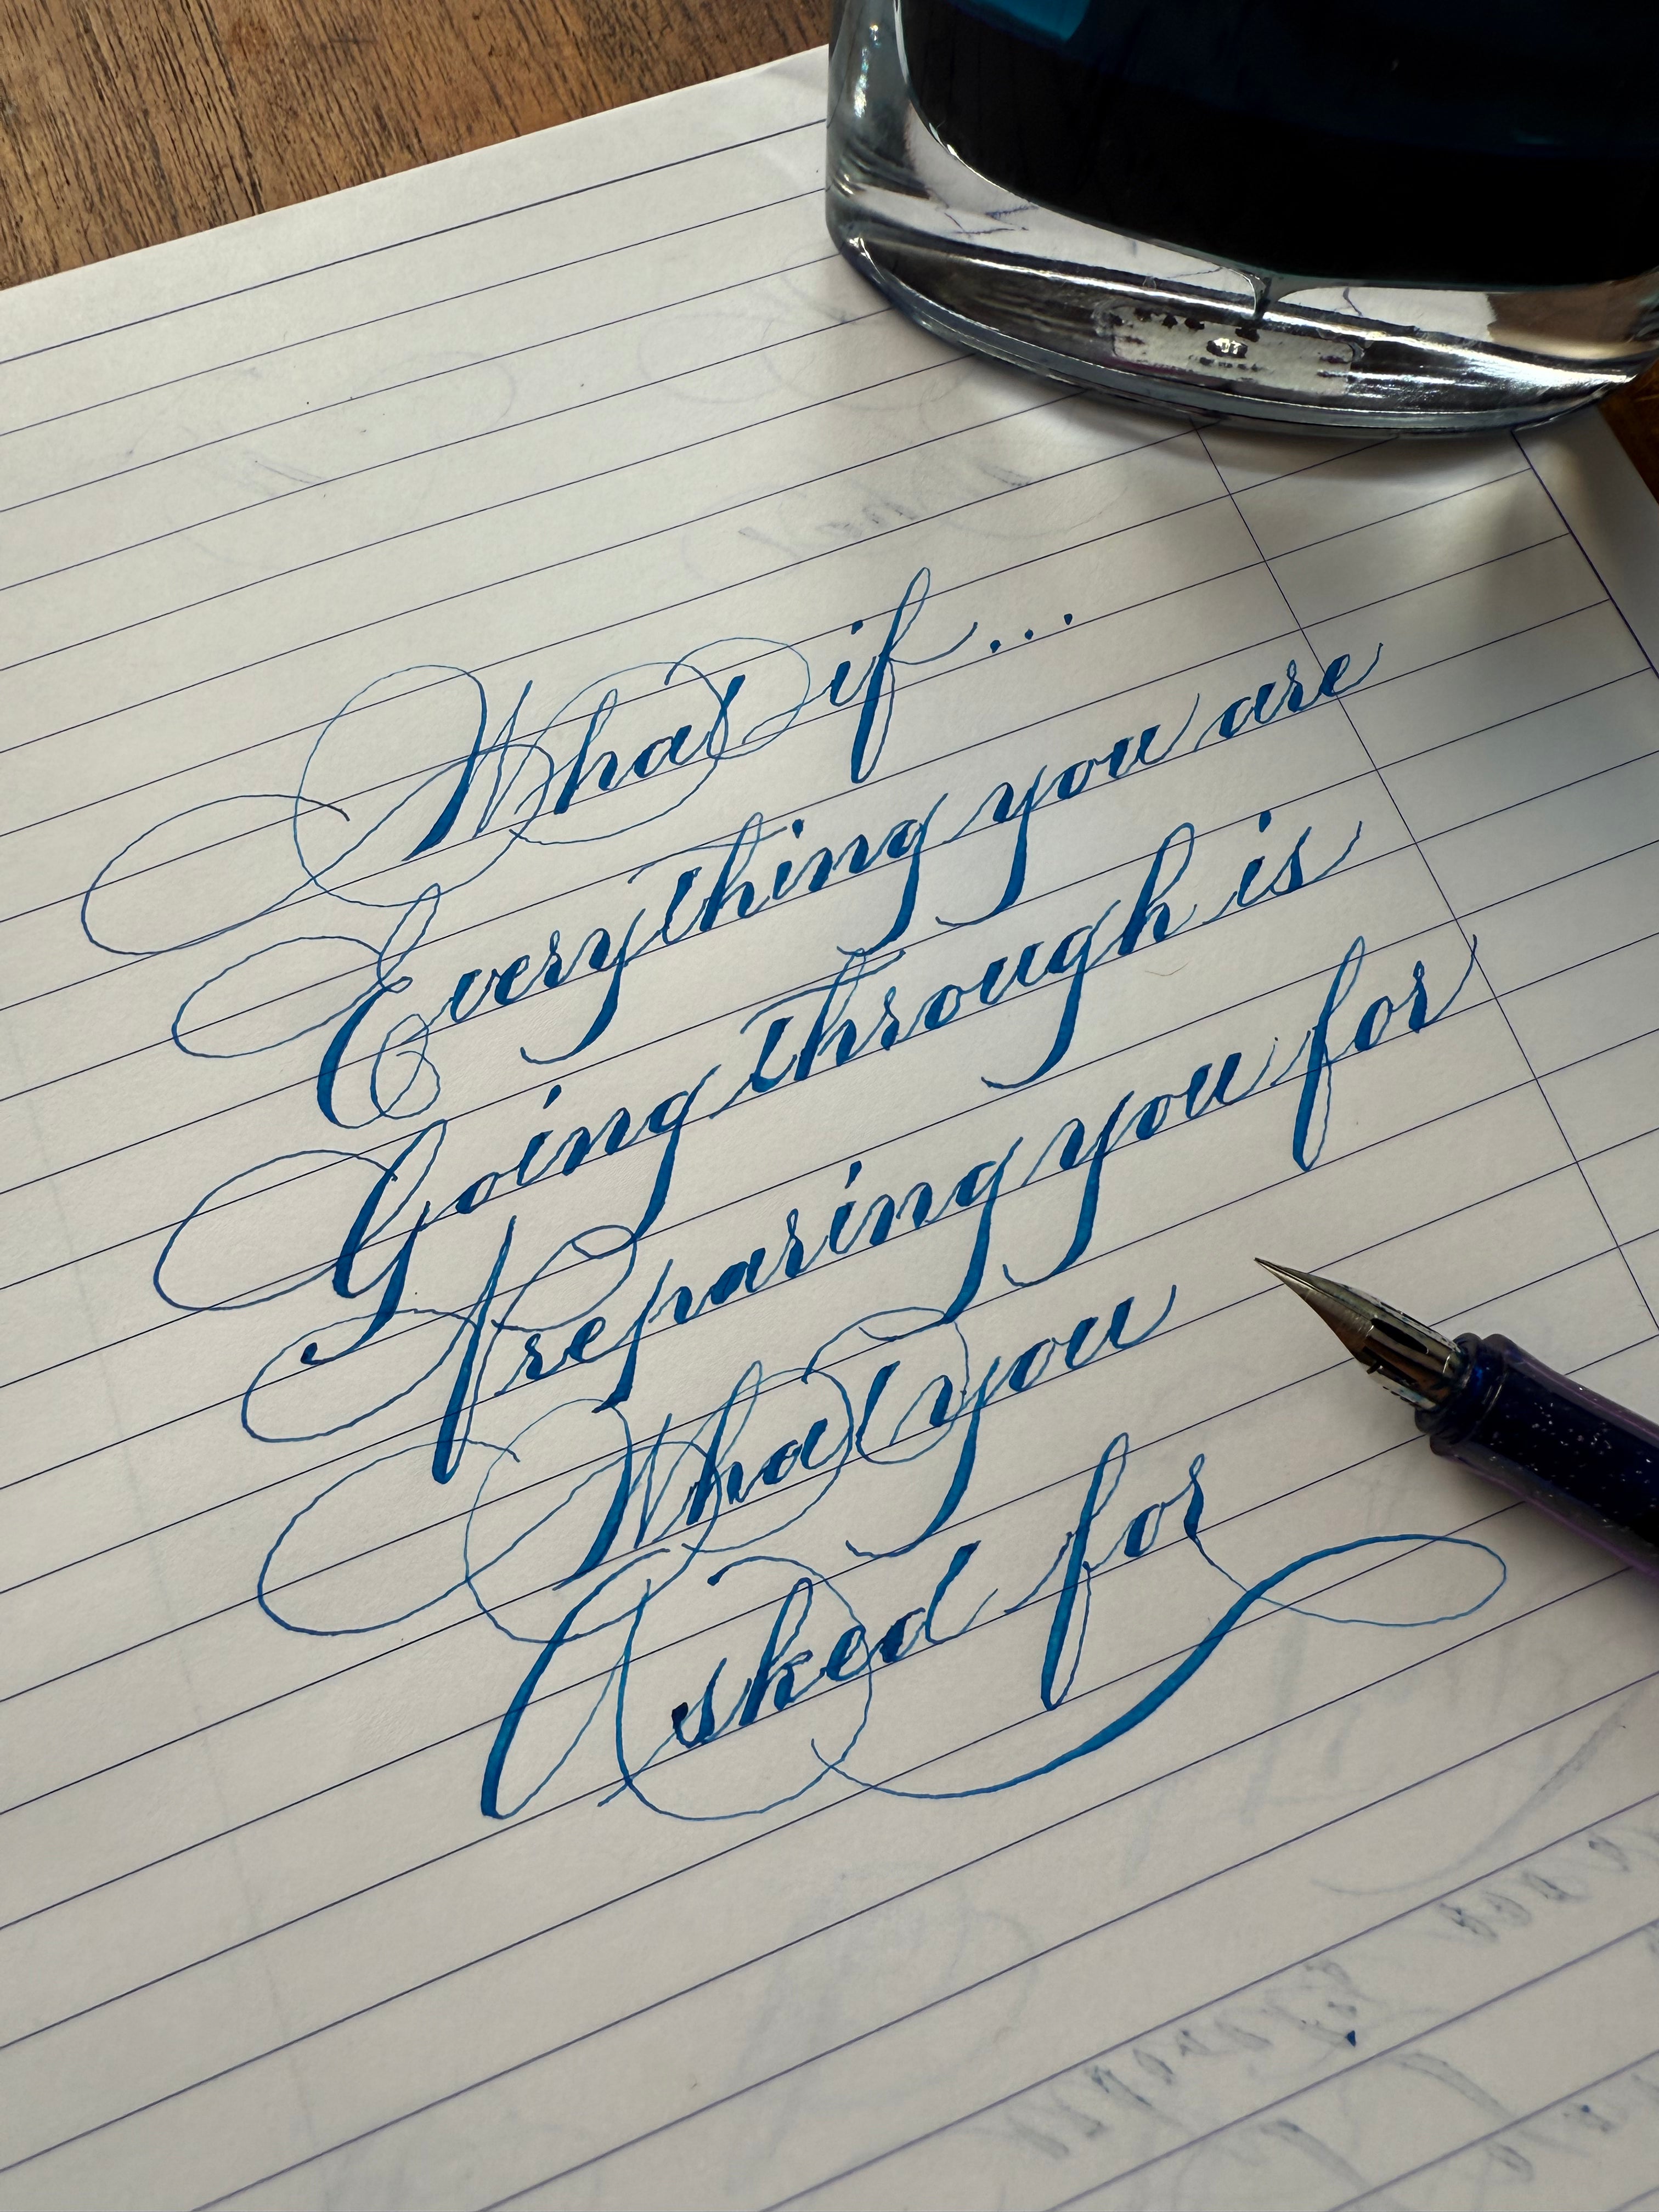 What if...
Everything you are
Going through is
Preparing you for
What you
Asked for